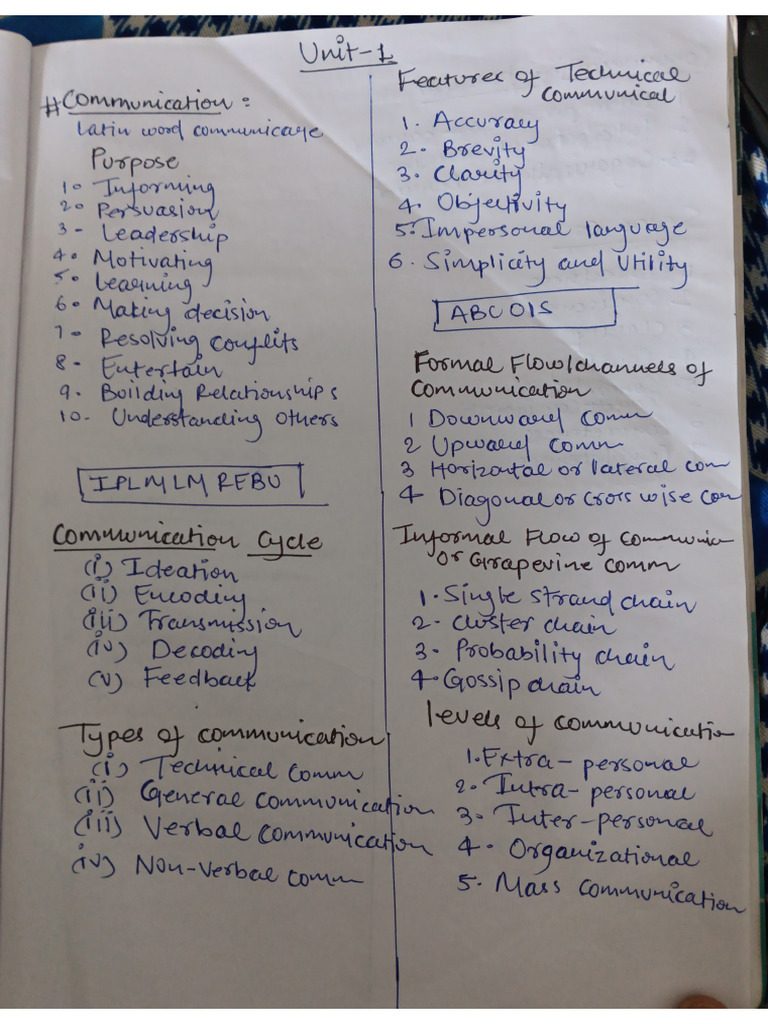 Unit-1
# Communication :
Latin word communicare
Purpose
1. Informing
2. Persuasion
3- Leadership
4. Motivating
5. Learning
6- Making decision
7- Resolving Conflits
8- Entertain
9. Boilding Relationships
10- Understanding Others
IPLMLM REBU
Communication Cycle
(i) Ideation
(ii) Encoding
(iii) Transmission
(iv) Decoding
(v) Feedback
Types of communication
(i) Technical Comm
(ii) General communication
(iii) Verbal communication
(iv) Non-Verbal comm
Features of Technical
communical
1. Accuracy
2. Brevity
3. Clarity
4. Objectivity
5. Impersonal language
6. Simplicity and Utility
ABCOIS
Formal Flow/channels of
communication
1 Downward Comm
2 Upward Comm
3 Horizontal or lateral com
4 Diagonal or Cross wise com
Informal Flow of communica
or Grapevine comm
1. Single strand chain
2- Cluster chain
3. Probability chain
4 Gossip chain
levels of communication
1. Extra-personal
2. Intra-personal
3. Inter-personal
4. Organizational
5. Mass communication